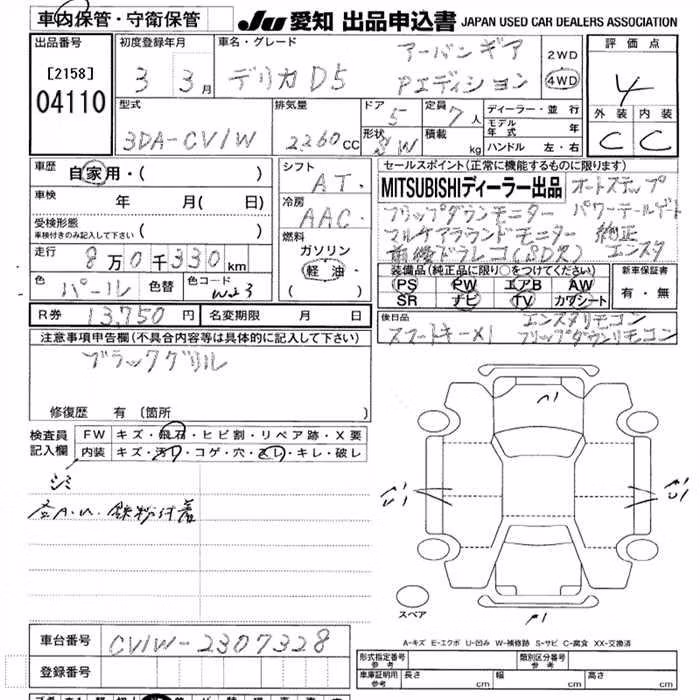 車内保管・守衛保管
JU 愛知 出品申込書 JAPAN USED CAR DEALERS ASSOCIATION
出品番号
[2158]
04110
初度登録年月
3 3月
車名・グレード
デリカD5 アーバンギア
Pエディション
2WD
4WD
評価点
4
外装 内装
C C
型式
3DA-CV1W
排気量
2260cc
ドア
5
形状
5W
定員
7人
積載
kg
ディーラー・並行
モデル年式 年
ハンドル 左・右
車歴
自家用・( )
車検
年 月( 日)
受検形態
車検付きのみ記入して下さい ( )
走行
8万0千330km
色
パール
色替
色コード
W23
シフト
AT
冷房
AAC
燃料
ガソリン
軽油
( )
セールスポイント(正常に機能するものに限ります)
MITSUBISHIディーラー出品 オートステップ
フリップダウンモニター パワーテールゲート
マルチアラウンドモニター 純正
前後ドラレコ(SD欠) エンスタ
装備品(純正品に限り○をつけてください)
PS PW エアB AW
SR ナビ TV カワシート
新車保証書
有・無
R券 13,750円
名変期限 月 日
後日品
スマートキー×1 エンスタリモコン
フリップダウンリモコン
注意事項申告欄(不具合内容等は具体的に記入して下さい)
ブラックグリル
修復歴 有 〔箇所 〕
検査員
記入欄
FW キズ・飛石・ヒビ割・リペア跡・X要
内装 キズ・汚れ・コゲ・穴・スレ・キレ・破レ
シミ
鉄粉付着
スペア
A-キズ E-エクボ U-凹み W-補修跡 S-サビ C-腐食 XX-交換済
車台番号
CV1W-2307328
登録番号
形式指定番号
参考
類別区分番号
参考
車庫証明用
参考
長さ cm 幅 cm 高さ cm